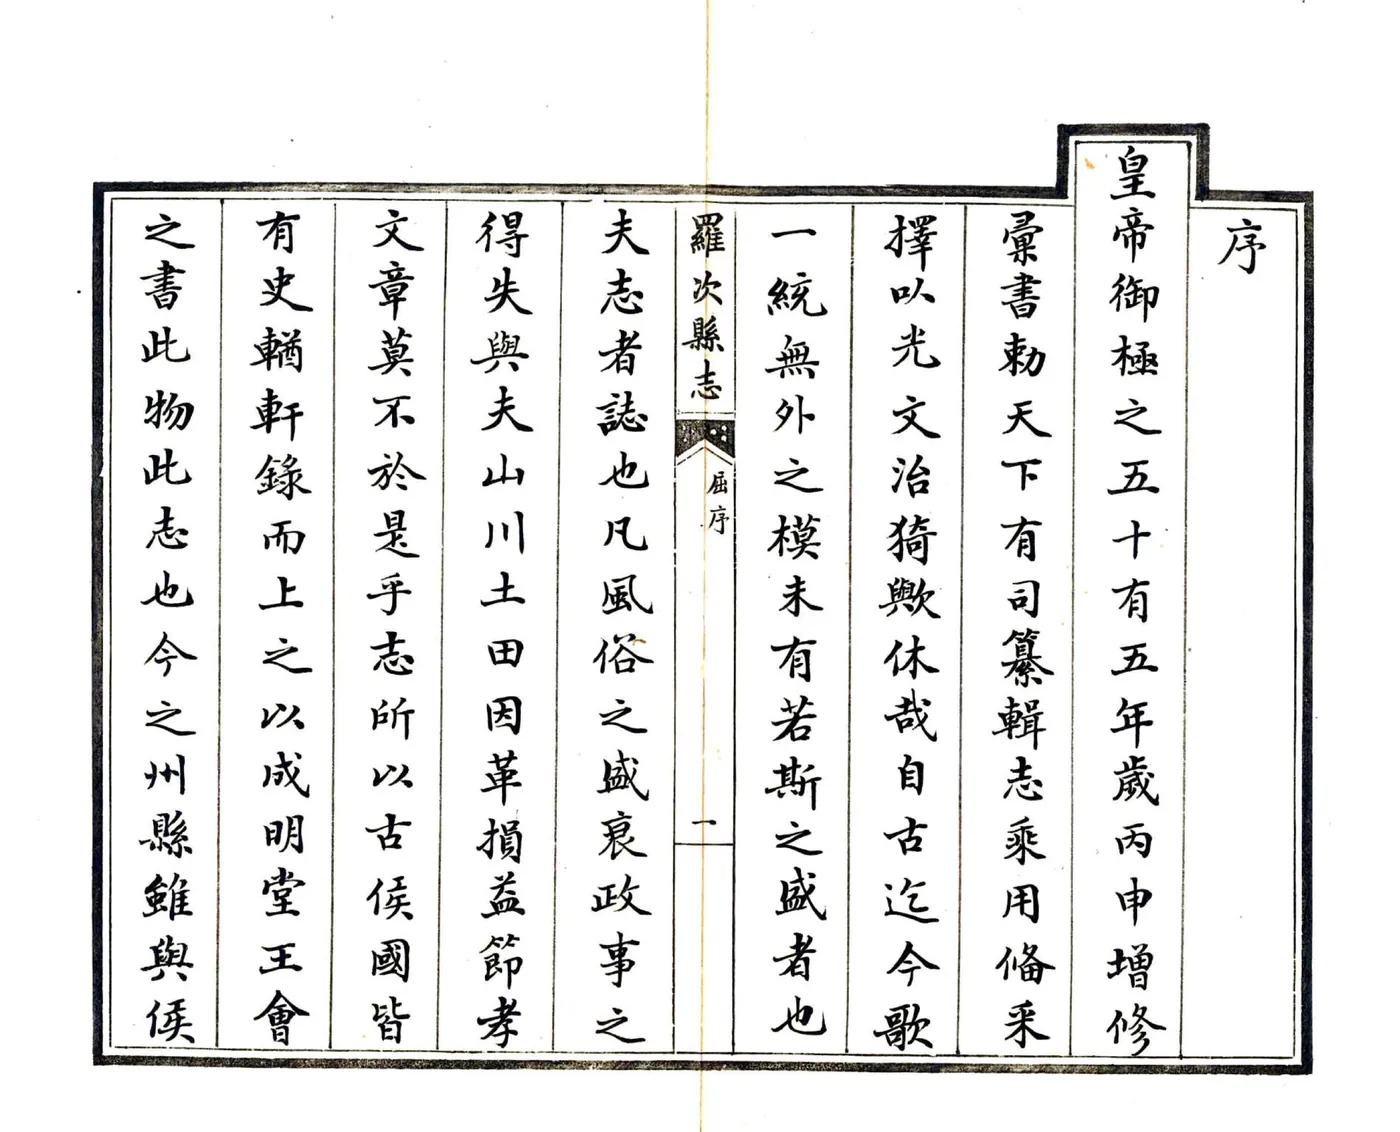 序
皇帝御極之五十有五年歲丙申增修
彙書勅天下有司纂輯志乘用俻采
擇以光文治猗歟休哉自古迄今歌
一統無外之模未有若斯之盛者也
羅次縣志
屈序
一
夫志者誌也凡風俗之盛衰政事之
得失與夫山川土田因革損益節孝
文章莫不於是乎志所以古侯國皆
有史輶軒錄而上之以成明堂王會
之書此物此志也今之州縣雖與侯